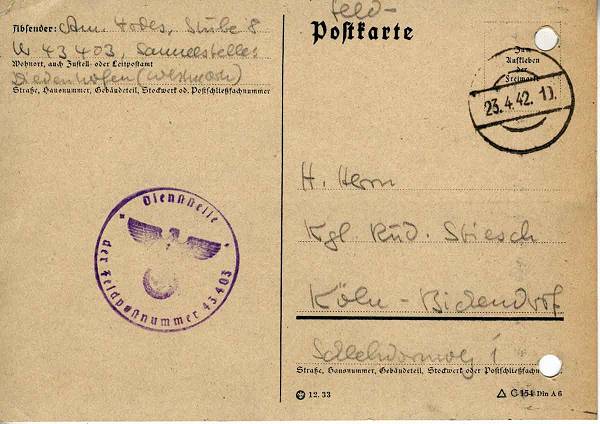 Feld-
Postkarte
Absender: Am. Todes, Stube 8
W 43403, Sammelstelle
Wohnort, auch Zustell- oder Leitpostamt
Diedenhofen (Westmark)
Straße, Hausnummer, Gebäudeteil, Stockwerk od. Postschließfachnummer
Zum
Aufkleben
der
Freimarke
23.4.42.
Dienststelle
der Feldpostnummer 43403
H. Herrn
Kgl. Rud. Stiesch
Köln - Bickendorf
Straße, Hausnummer, Gebäudeteil, Stockwerk oder Postschließfachnummer
12. 33
C 154 Din A 6